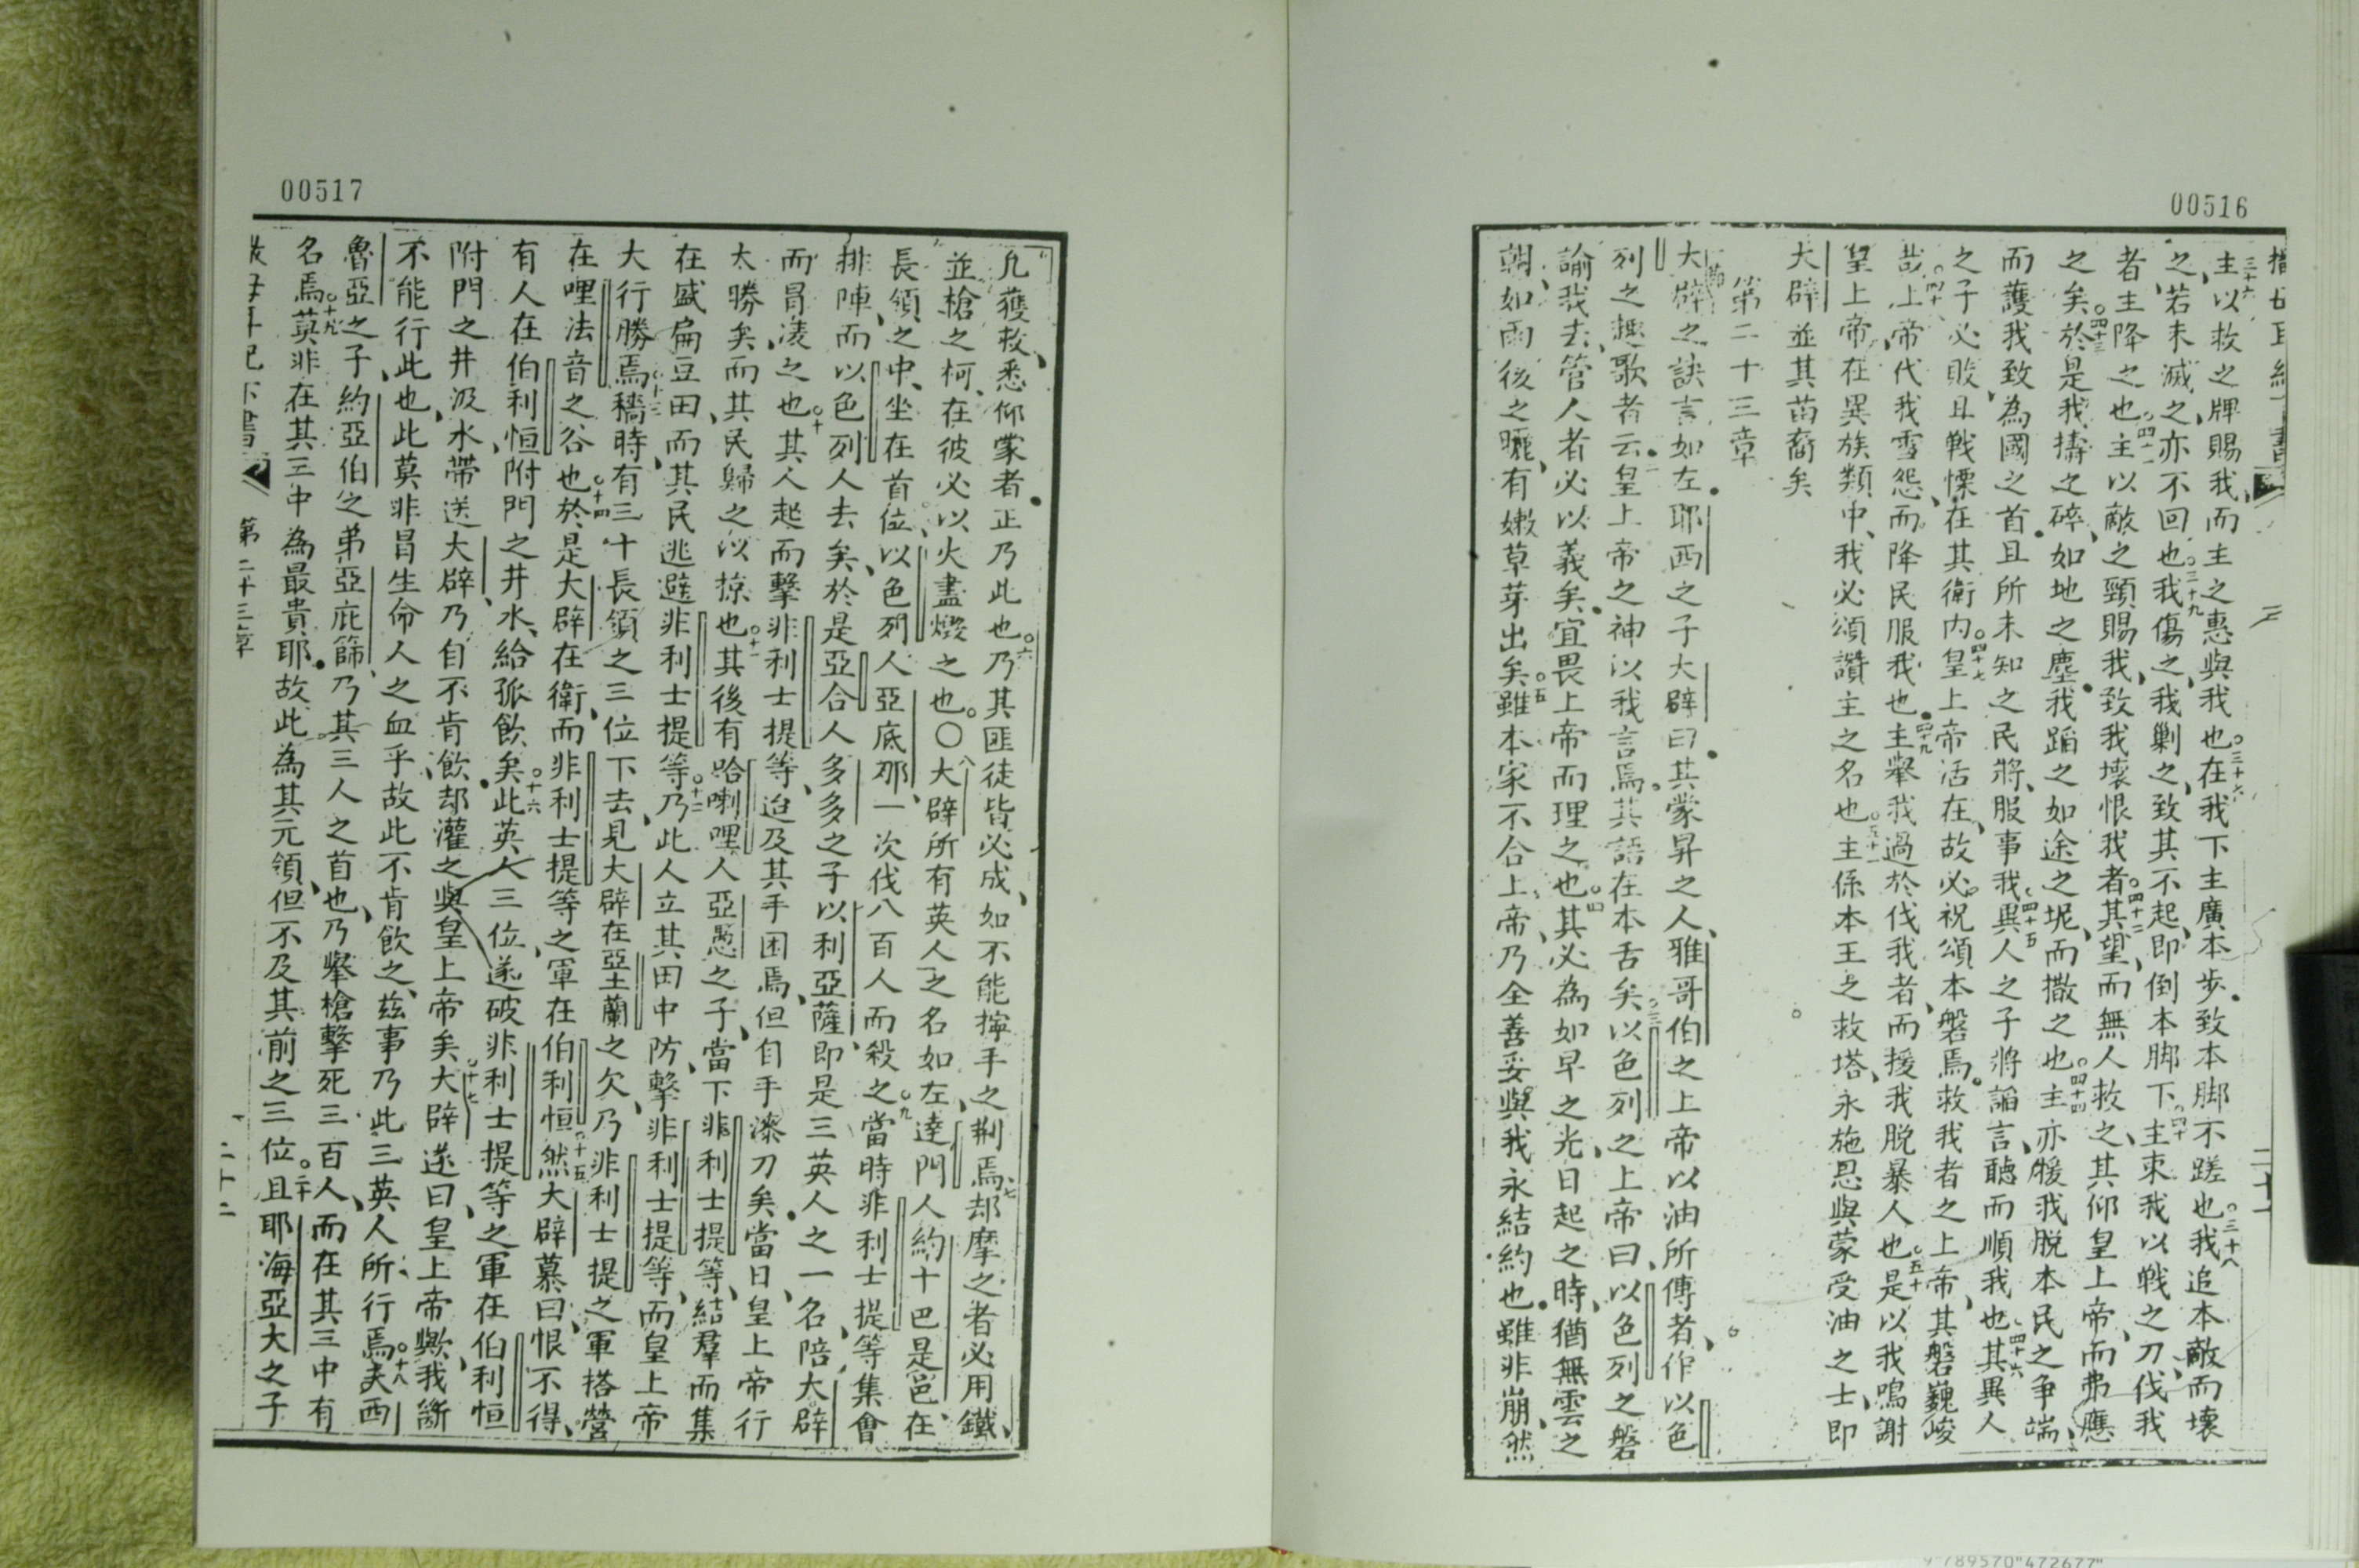 00516
主以救之牌賜我、而主之惠與我也。三十六在我下主廣本步。致本脚不蹉也。三十八我追本敵而壞
之、若未滅之亦不回也。三十九我傷之、我剿之、致其不起、即倒本脚下。四十主束我以戰之刀、伐我
者主降之也。四十一主以敵之頸賜我、致我壞恨我者。四十二其望、而無人救之、其仰皇上帝、而弗應
之矣。四十三於是我擣之碎、如地之塵。我蹈之如途之坭、而撒之也。四十四主亦援我脫本民之争端、
而護我致為國之首。且所未知之民將服事我。四十五異人之子將謟言、聽而順我也。四十六其異人
之子必敗、且戰慄在其衛內。四十七皇上帝活在、故必祝頌本磐焉。救我者之上帝、其磐巍峻
哉。四十八上帝代我雪怨、而降民服我也。四十九主舉我過於伐我者、而援我脫暴人也。五十是以我鳴謝
皇上帝在異族類中、我必頌讚主之名也。五十一主係本王之救塔、永施恩與蒙受油之士、即
大辟並其苗裔矣
第二十三章
大辟之訣言如左。耶西之子大辟曰。其蒙昇之人、雅哥伯之上帝以油所傳者、作以色
列之趣歌者云。二皇上帝之神以我言焉。其語在本舌矣。三以色列之上帝曰、以色列之磐
諭我去、管人者必以義矣。宜畏上帝而理之也。四其必為如早之光、日起之時、猶無雲之
朝、如雨後之曬、有嫩草芽出矣。五雖本家不合上帝、乃全善妥與我永結約也。雖非崩、然
二十一
00517
凡獲救、悉仰蒙者。正乃此也。六乃其匪徒皆必成、如不能擰手之荆焉。七却摩之者必用鐵、
並槍之柯、在彼必以火盡燬之也。〇八大辟所有英人之名如左、達門人約十巴是邑在
長領之中、坐在首位、以色列人亞底挪、一次伐八百人而殺之。九當時非利士提等集會
排陣、而以色列人去矣、於是亞合人多多之子以利亞薩、即是三英人之一名陪大辟
而冒凌之也。十其人起而擊非利士提等、迨及其手困焉、但自手漆刀矣。當日、皇上帝行
太勝矣、而其民歸之以掠也。十一其後有哈喇哩人亞愚之子、當下非利士提等、結羣而集
在盛扁豆田、而其民逃避非利士提等。十二乃此人立其田中防、擊非利士提等、而皇上帝
大行勝焉。十三穡時、有三十長領之三位下去見大辟在亞土蘭之穴、乃非利士提之軍搭營
在哩法音之谷也。十四於是大辟在衛、而非利士提等之軍在伯利恒。十五然大辟慕曰、恨不得、
有人在伯利恒附門之井水、給孤飲矣。十六此英人三位遂破非利士提等之軍在伯利恒
附門之井汲水、帶送大辟、乃自不肯飲、却灌之與皇上帝矣。十七大辟遂曰、皇上帝歟、我斷
不能行此也、此莫非冒生命人之血乎、故此不肯飲之、兹事乃此三英人所行焉。十八夫西
魯亞之子、約亞伯之弟亞庇篩、乃其三人之首也、乃舉槍擊死三百人、而在其三中有
名焉。十九莫非在其三中為最貴耶。故此為其元領、但不及其前之三位。二十且耶海亞大之子
第二十三章
二十二